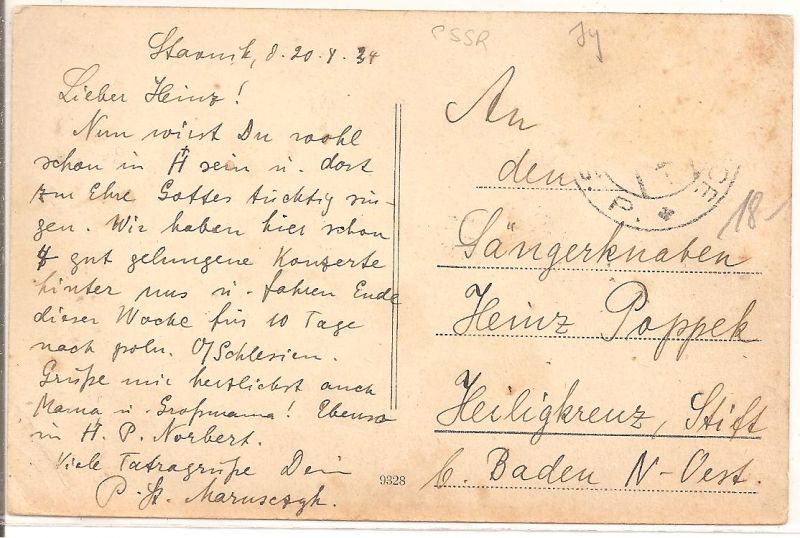 ČSSR
Lieber Heinz!
Nun wirst Du wohl
schon in H sein u. dort
zur Ehre Gottes tüchtig sin-
gen. Wir haben hier schon
gut gelungene Konzerte
hinter uns u. fahren Ende
dieser Woche für 10 Tage
nach poln. O/Schlesien.
Grüße mir herzlichst auch
Mama u. Großmama! Ebenso
in H. P. Norbert.
Viele Tatragrüße Dein
P. St. Marusczyk.
9328
An
den
Sängerknaben
Heinz Poppek
Heiligkreuz, Stift
b. Baden N-Oest.
18-